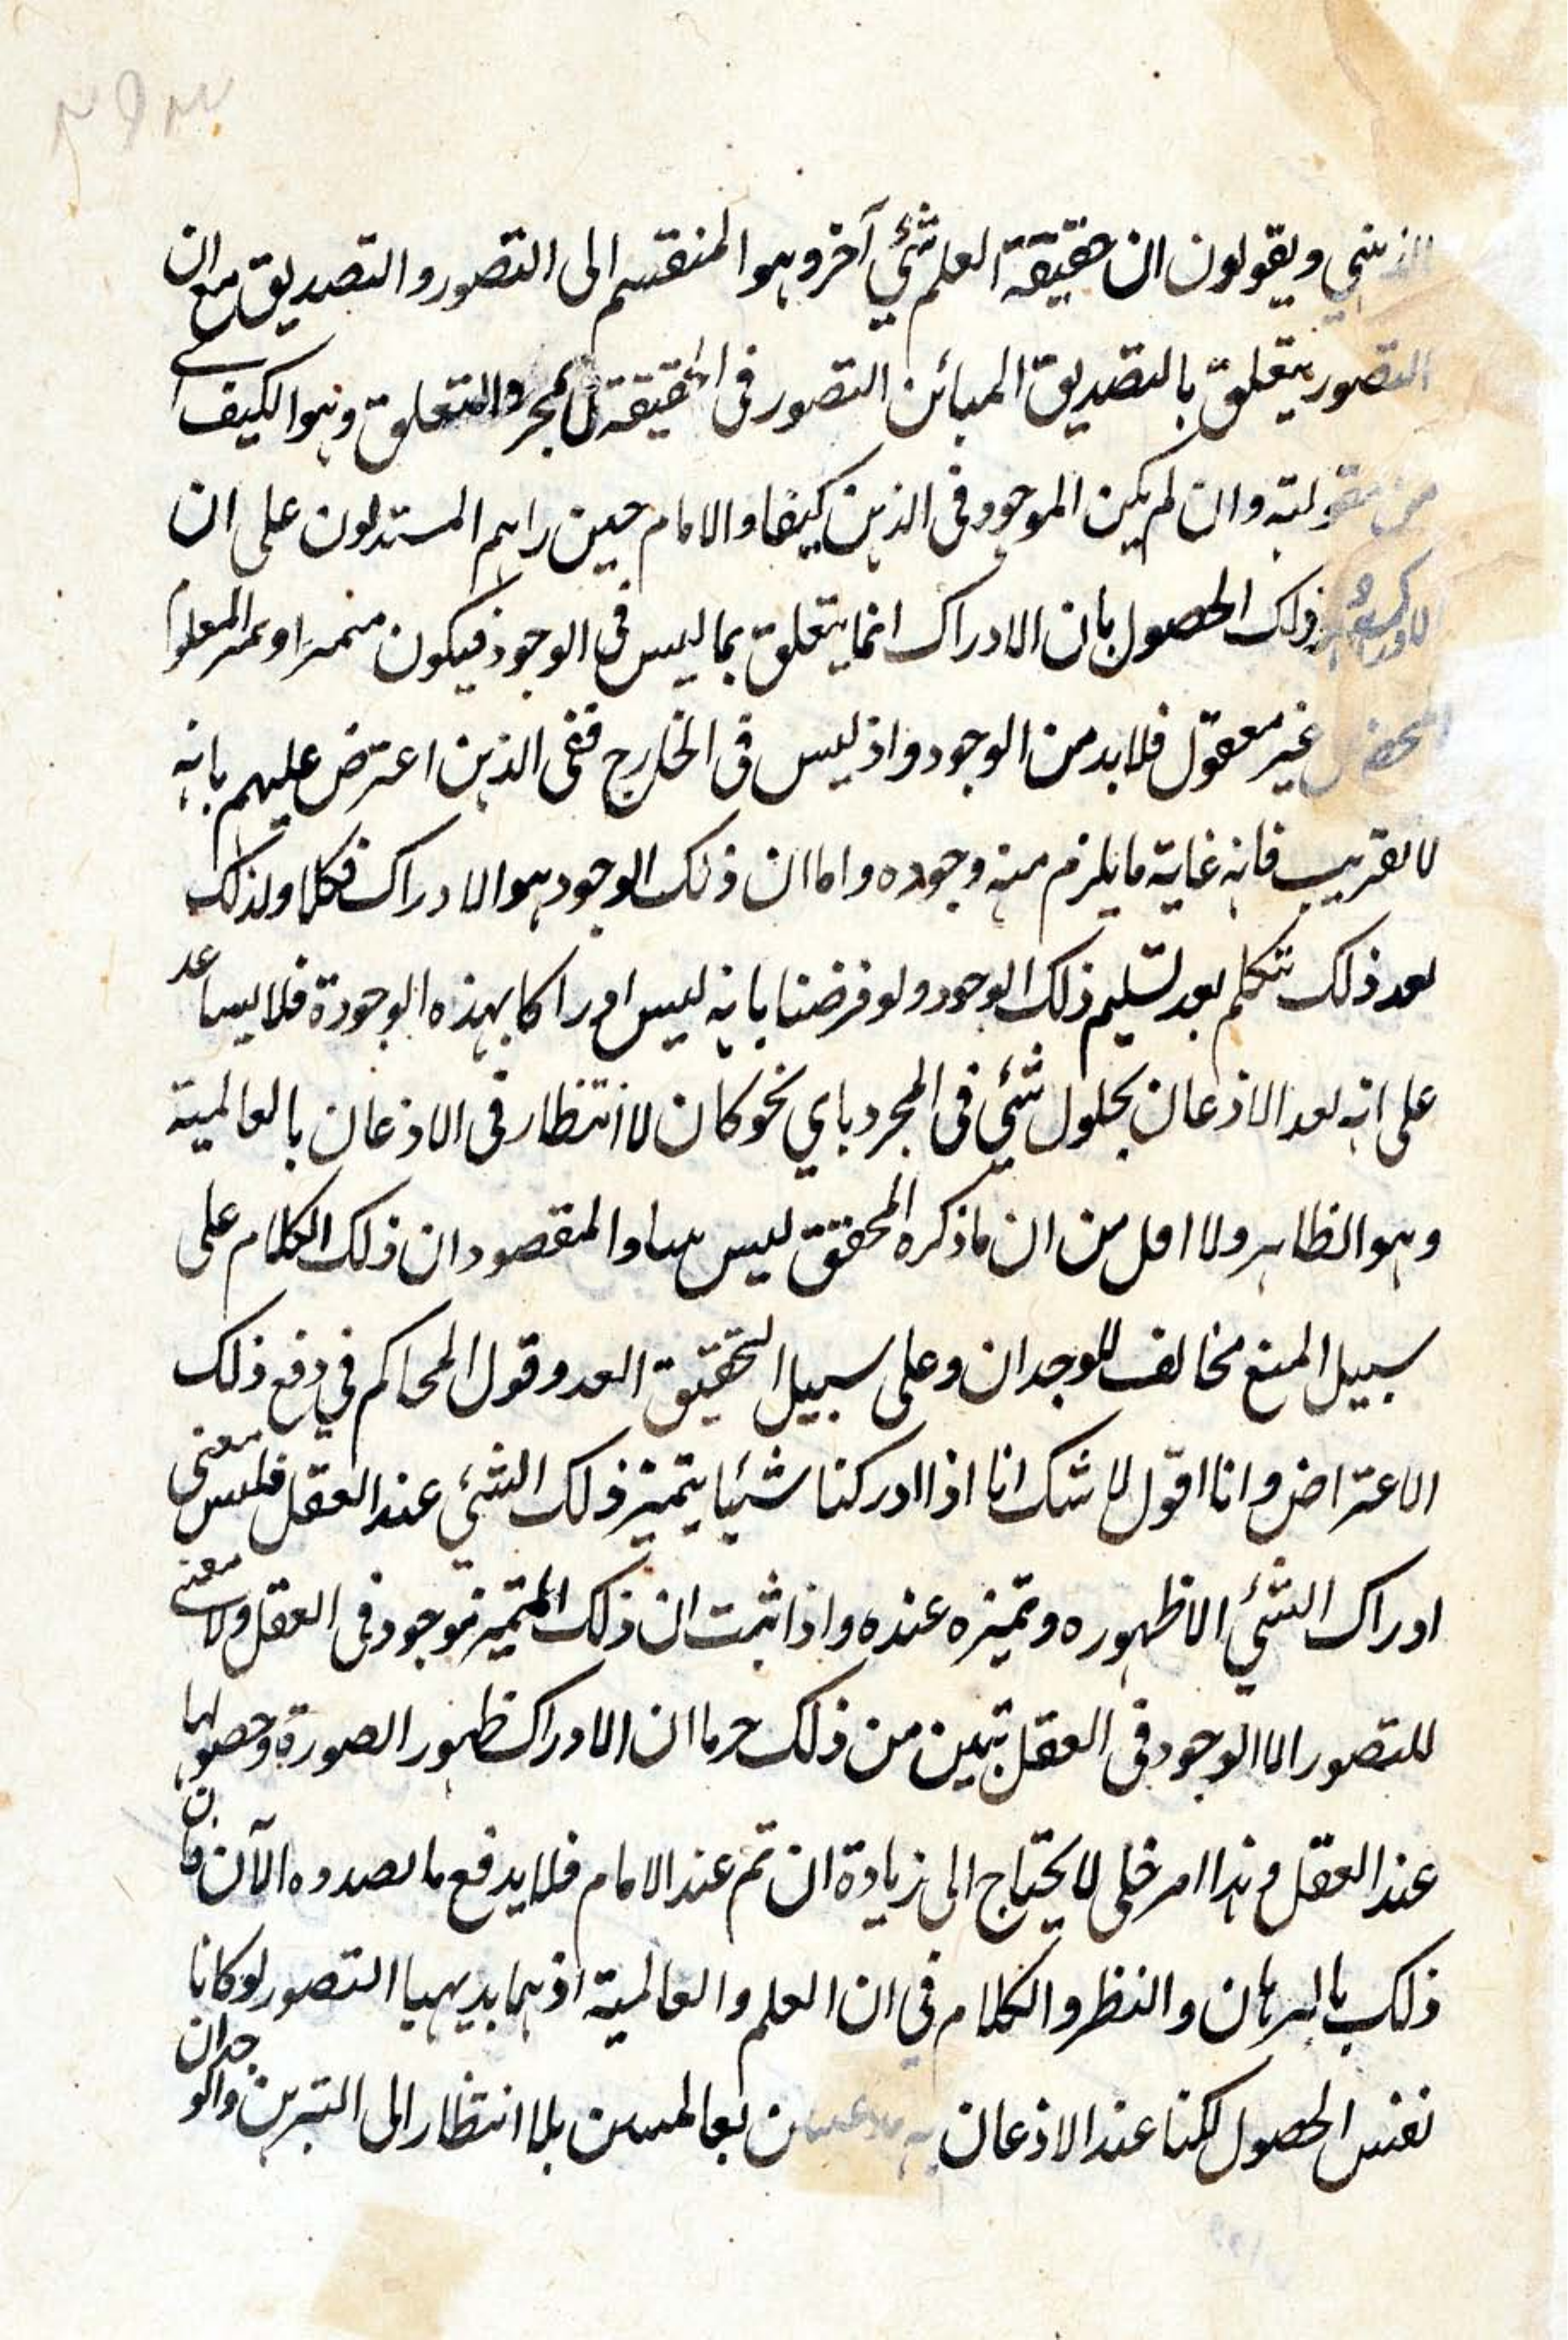 الذهني ويقولون ان حقيقة العلم شئي آخر وهو المنقسم الى التصور والتصديق مع ان
التصور يتعلق بالتصديق المبائن التصور في الحقيقة لمجرد التعلق وهو الكيف
من مقولته وان لم يكن الموجود في الذهن كيفا والامام حين راهم المستدلون على ان
ذلك الحصول بان الادراك انما يتعلق بما ليس في الوجود فيكون متميزا وتميز المعدوم
المحض غير معقول فلابد من الوجود واذ ليس في الخارج ففي الذهن اعترض عليهم بانه
لا تقريب فانه غاية ما يلزم منه وجوده واما ان ذلك الوجود هو الادراك فكلا ولذلك
بعد ذلك تكلم بعد تسليم ذلك الوجود ولو فرضنا بانه ليس ادراكا بهذه الوجودة فلا يساعد
على انه بعد الاذعان بحلول شئي في المجرد باي نحو كان لا انتظار في الاذعان بالعالمية
وهو الظاهر ولا اقل من ان ما ذكره المحقق ليس والمقصود ان ذلك الكلام على
سبيل المنع مخالف للوجدان وعلى سبيل التحقيق ابعد وقول المحاكم في دفع ذلك
الاعتراض وانا اقول لا شك انا اذا ادركنا شيئا يتميز ذلك الشئي عند العقل فليس معنى
ادراك الشئي الا ظهوره وتميزه عنده واذا ثبت ان ذلك المتميز موجود في العقل ولا معنى
للتصور الا الوجود في العقل تبين من ذلك جرما ان الادراك ظهور الصورة وحصولها
عند العقل وهذا امر جلي لا يحتاج الى زيادة ان تم عند الامام فلا يدفع ما بصدده الآن فان
ذلك بالبرهان والنظر والكلام في ان العلم والعالمية اذ هما بديهيا التصور لو كانا
نفس الحصول لكنا عند الاذعان به بلا انتظار الى التبرهن والوجدان